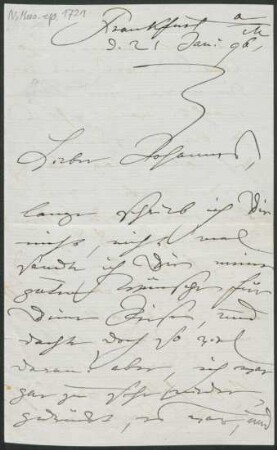 N. Mus. ep. 1721
Frankfurt a/M
d. 21 Jan. 96
Lieber Johannes,
lange schrieb ich Dir
nicht, nicht mal
sandte ich Dir meine
guten Wünsche für
Deine Reisen, und
dachte doch so viel
daran, aber, ich war
gar zu sehr
gedrückt, es war, und